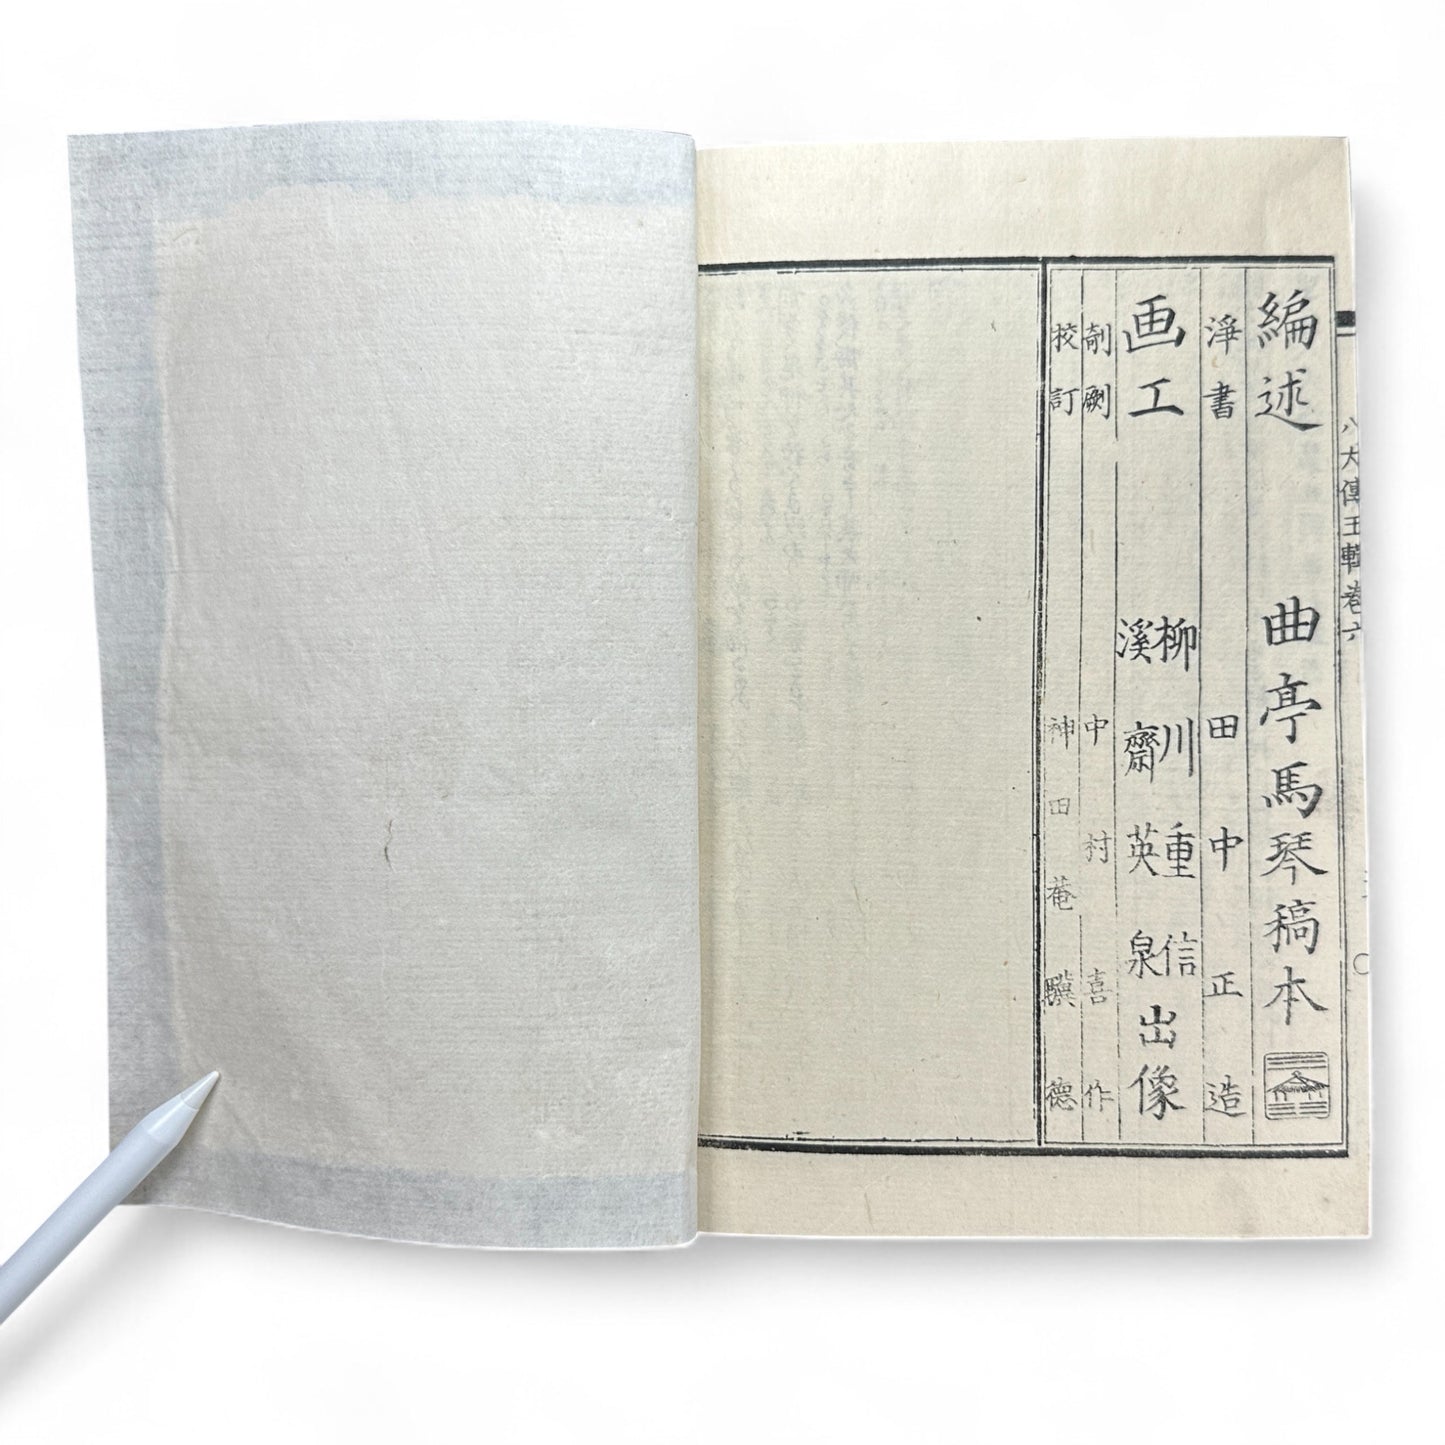 八犬傳五輯卷六
編述 曲亭馬琴稿本
淨書 田中正造
画工 柳川重信
溪齋英泉 出像
剞劂 中村喜作
校訂 神田菴驥德